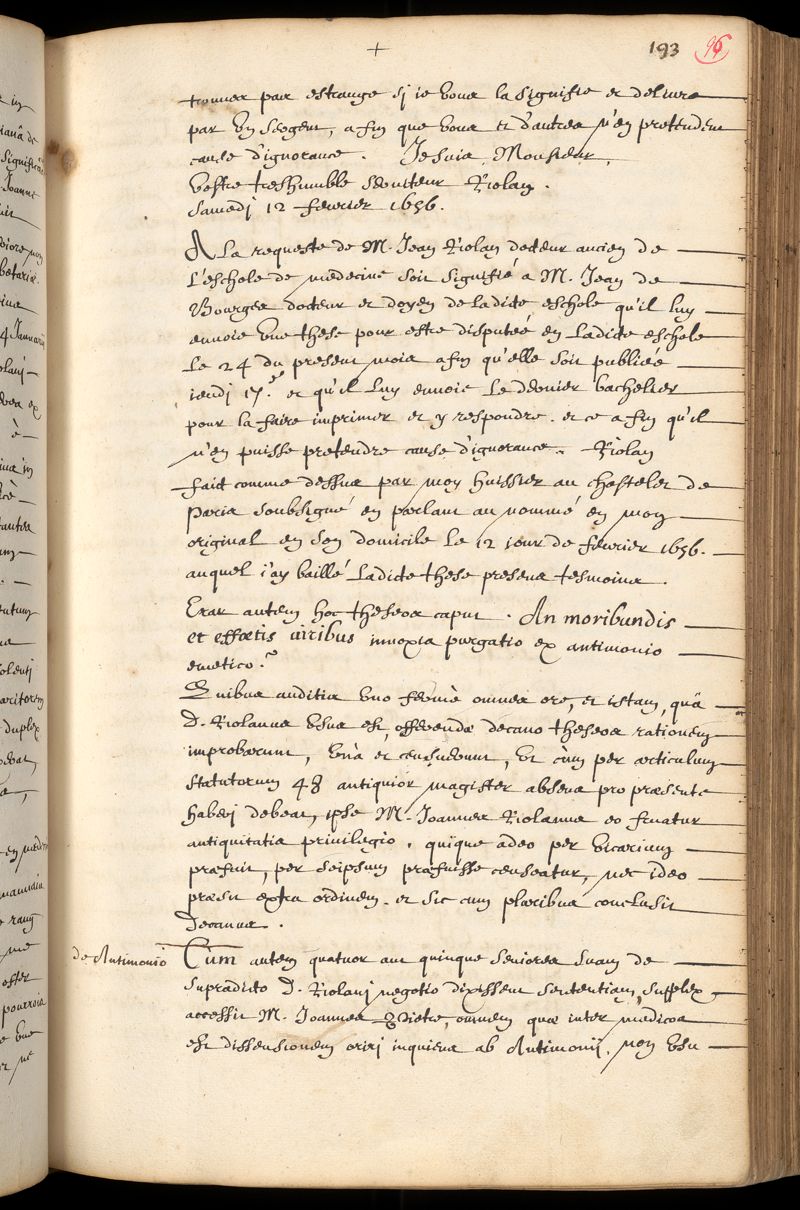 193 96
trouver par estrange sj ie vous la signifie et delivre
par un sergent, afin que vous et d'autres n'en pretendent
cause d'ignorance. Je suis, Monsieur,
vostre treshumble serviteur Riolan.
Samedj 12 fevrier 1656.
A La requeste de M. Jean Riolan docteur ancien de
L'eschole de medecine soit signifié a M. Jean de
Bourges docteur et doyen de ladicte eschole qu'il luy
envoie une these pour estre disputéé en Ladicte eschole
Le 24 du present mois afin qu'elle soit publiéé
jeudj 17.e et qu'il luy envoie Le dernier bachelier
pour la faire imprimer et y respondre. et ce afin qu'il
n'en puisse pretendre cause d'ignorance. Riolan
faict comme dessus par moy huissier au chastelet de
Paris soubsigné en parlant au nommé en mon
original en son domicile Le 12 jour de fevrier 1656.
auquel j'ay baillé Ladicte these presens tesmoins.
Erat autem hoc theseos caput. An moribundis
et effœtis viribus innoxia purgatio ex antimonio
emetico?
Quibus auditis uno fermè omnes ore, et istam, quâ
D. Riolanus usus est, offerendæ decano theseos rationem
improbarunt, unà et censuerunt, ut cùm per articulum
statutorum 48 antiquior magister absens pro præsente
haberj debeat, ipse M. Joannes Riolanus eo fruatur
antiquitatis privilegio, quique adeo per vicarium
præfuit, per seipsum præfuisse censeatur, nec ideo
præsit extra ordinem. et sic cum pluribus conclusit
Decanus.
de Antimonio
Cum autem quatuor aut quinque seniores suam de
supradicto D. Riolanj negotio dixissent sententiam, supplex
accessit M. Joannes Piètre, omnem quæ inter medicos
est dissensionem orirj inquiens ab Antimonij, non usu